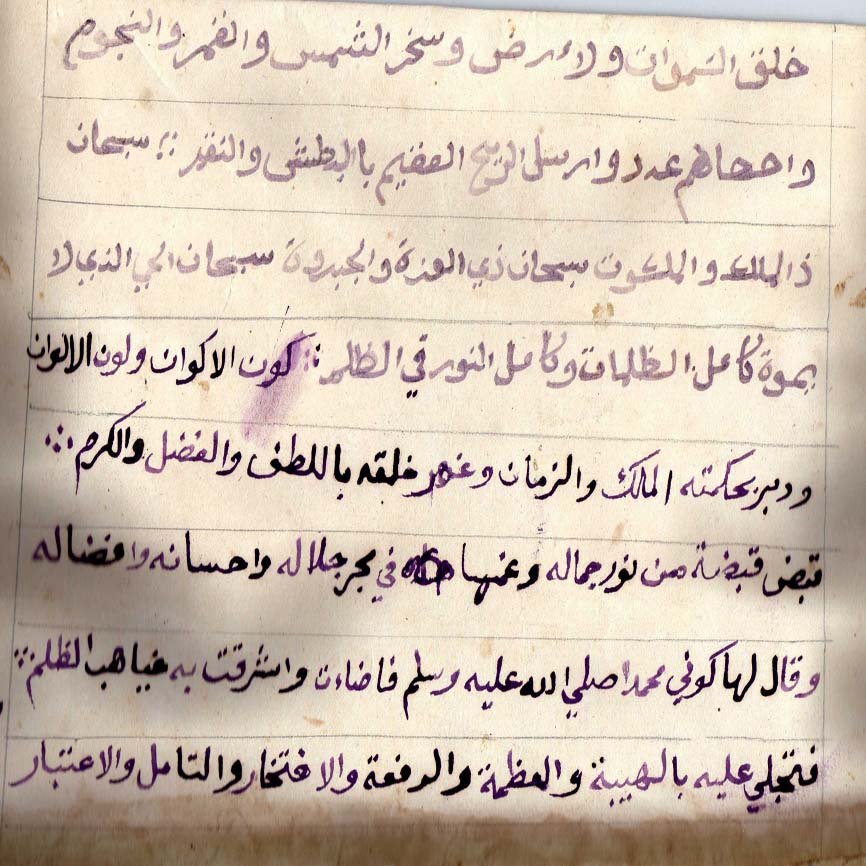 خلق السموات ولأرض وسخر الشمس والقمر والنجوم
واحصاهم عدد وارسل الريح العقيم بالبطش والنقم ∴ سبحان
ذالملك والملكوت سبحان ذي العزة والجبروة سبحان الحي الذي لا
يموة كامل الظلمات وكامل النور في الظلم ∴ كون الاكوان ولون الالوان
ودبر بحكمته الملك والزمان وغمر خلقه باللطف والفضل والكرم ∴
قبض قبضة من نور جماله وغمها في بحر جلاله واحسانه وافضاله
وقال لها كوني محمدا صلي الله عليه وسلم فاضاءت واشرقت به غياهب الظلم ∴
فتجلي عليه بالهيبة والعظمة والرفعة والافتخار والتامل والاعتبار